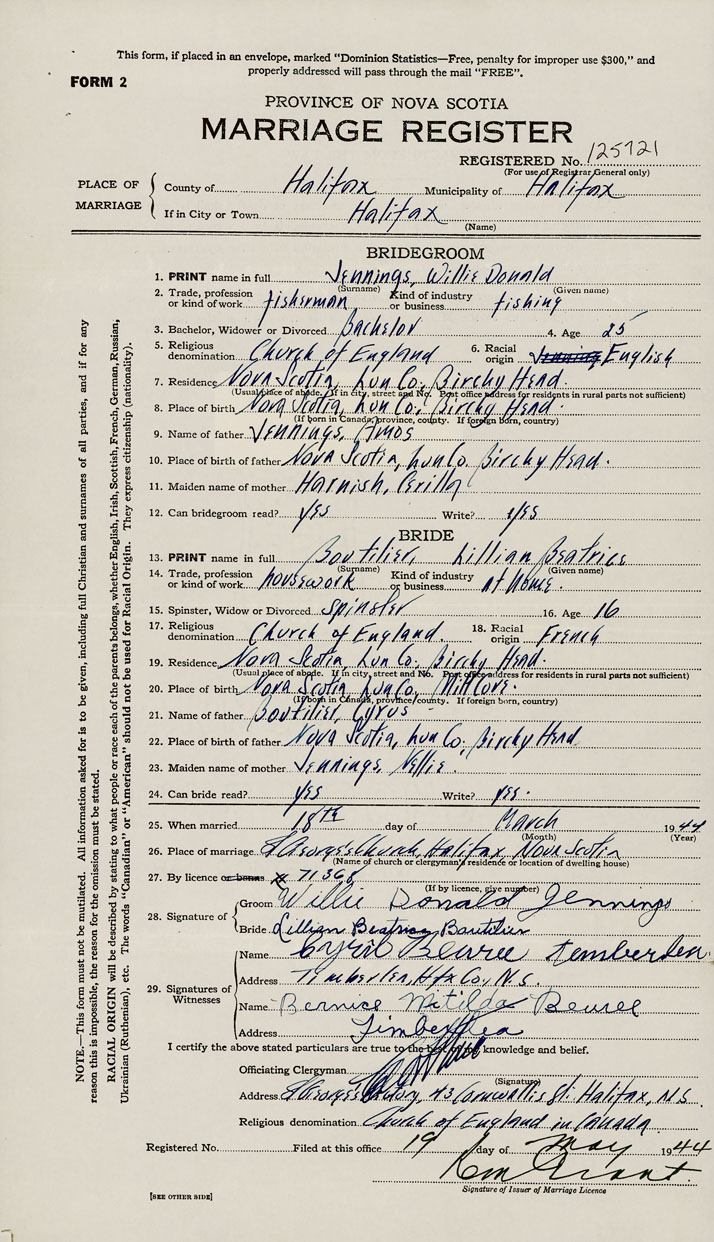 This form, if placed in an envelope, marked "Dominion Statistics—Free, penalty for improper use $300," and
properly addressed will pass through the mail "FREE".
FORM 2
PROVINCE OF NOVA SCOTIA
MARRIAGE REGISTER
REGISTERED No. 125721
(For use of Registrar General only)
PLACE OF MARRIAGE
County of Halifax Municipality of Halifax
If in City or Town Halifax
(Name)
BRIDEGROOM
1. PRINT name in full Jennings, Willie Donald
(Surname) (Given name)
2. Trade, profession or kind of work fisherman Kind of industry or business fishing
3. Bachelor, Widower or Divorced Bachelor 4. Age 25
5. Religious denomination Church of England 6. Racial origin Jennings English
7. Residence Nova Scotia, Lun Co, Birchy Head.
(Usual place of abode. If in city, street and No. Post office address for residents in rural parts not sufficient)
8. Place of birth Nova Scotia, Lun Co, Birchy Head.
(If born in Canada, province, county. If foreign born, country)
9. Name of father Jennings, Amos
10. Place of birth of father Nova Scotia, Lun Co. Birchy Head.
11. Maiden name of mother Harnish, Cerilla
12. Can bridegroom read? yes Write? yes
BRIDE
13. PRINT name in full Boutilier, Lillian Beatrice
(Surname) (Given name)
14. Trade, profession or kind of work housework Kind of industry or business at Home.
15. Spinster, Widow or Divorced Spinster 16. Age 16
17. Religious denomination Church of England. 18. Racial origin French
19. Residence Nova Scotia, Lun Co, Birchy Head.
(Usual place of abode. If in city, street and No. Post office address for residents in rural parts not sufficient)
20. Place of birth Nova Scotia, Lun Co, Mill Cove.
(If born in Canada, province, county. If foreign born, country)
21. Name of father Boutilier, Cyrus
22. Place of birth of father Nova Scotia, Lun Co. Birchy Head.
23. Maiden name of mother Jennings, Nellie.
24. Can bride read? yes Write? yes.
25. When married 18th day of March 1944
(Month) (Year)
26. Place of marriage St Georges Church, Halifax, Nova Scotia
(Name of church or clergyman's residence or location of dwelling house)
27. By licence or banns x 71368
(If by licence, give number)
28. Signature of
Groom Willie Donald Jennings
Bride Lillian Beatrice Boutilier
29. Signatures of Witnesses
Name Cyril Beuree
Address Timberlea, Hfx Co, N.S.
Name Bernice Matilda Beuree
Address Timberlea
I certify the above stated particulars are true to the best of my knowledge and belief.
Officiating Clergyman
(Signature)
Address St Georges Rectory, 43 Cornwallis St. Halifax, N.S.
Religious denomination Church of England in Canada
Registered No. Filed at this office 19 day of May 1944
Signature of Issuer of Marriage Licence
[SEE OTHER SIDE]
NOTE.—This form must not be mutilated. All information asked for is to be given, including full Christian and surnames of all parties, and if for any
reason this is impossible, the reason for the omission must be stated.
RACIAL ORIGIN will be described by stating to what people or race each of the parents belongs, whether English, Irish, Scottish, French, German, Russian,
Ukrainian (Ruthenian), etc. The words "Canadian" or "American" should not be used for Racial Origin. They express citizenship (nationality).